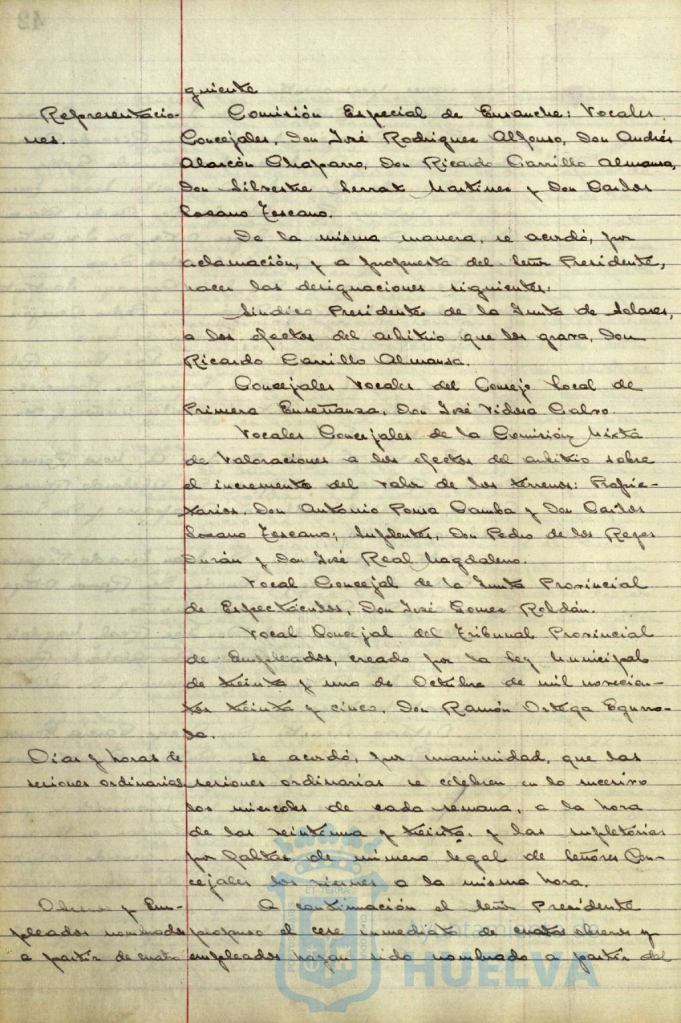 guiente
Representacio-
nes.
Comisión Especial de Ensanche: Vocales
Concejales, Don José Rodríguez Alfonso, Don Andrés
Alarcón Chaparro, Don Ricardo Carrillo Almansa,
Don Silvestre Serrat Martínez y Don Carlos
Lozano Zescano.
De la misma manera, se acordó, por
aclamación, y a propuesta del Señor Presidente,
hacer las designaciones siguientes:
Síndico Presidente de la Junta de Solares,
a los efectos del arbitrio que los grava, Don
Ricardo Carrillo Almansa.
Concejales Vocales del Consejo Local de
Primera Enseñanza, Don José Vidosa Calvo.
Vocales Concejales de la Comisión Mixta
de Valoraciones a los efectos del arbitrio sobre
el incremento del valor de los terrenos: Propie-
tarios, Don Antonio Poma Camba y Don Carlos
Lozano Zescano; Suplentes, Don Pedro de los Reyes
Durán y Don José Real Magdaleno.
Vocal Concejal de la Junta Provincial
de Espectáculos, Don José Gomez Roldán.
Vocal Concejal del Tribunal Provincial
de Empleados, creado por la ley Municipal
de treinta y uno de Octubre de mil novecien-
tos treinta y cinco, Don Ramón Ortega
Días y horas de
sesiones ordinarias
Se acordó, por unanimidad, que las
sesiones ordinarias se celebren en lo sucesivo
los miercoles de cada semana, a la hora
de las veintiuna y treinta, y las supletorias
por faltas de número legal de Señores Con-
cejales los viernes a la misma hora.
Obreros y Em-
pleados nombrados
a partir de cuatro
A continuación el Señor Presidente
propuso el cese inmediato de cuatos obreros y
empleados hayan sido nombrado a partir del
Ayuntamiento
HUELVA